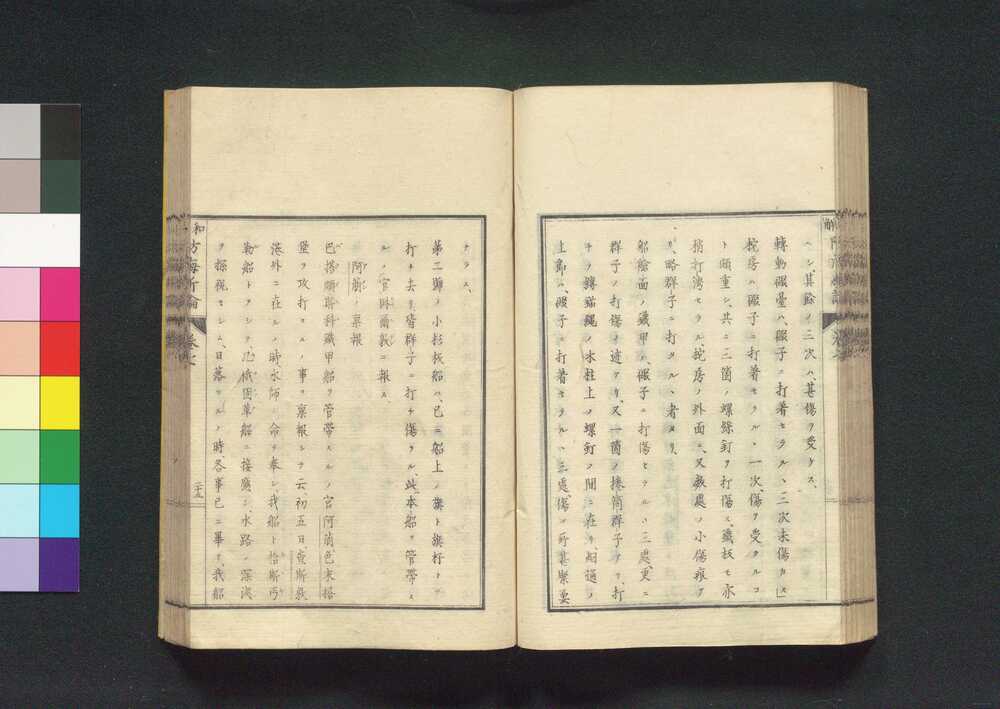 ヘシ、其餘ノ三次ハ、甚傷ヲ受ケス、
轉動礮臺ハ、礮子ニ打著セラルヽ三次未傷カス」
舵房ハ礮子ニ打著セラルヽ一次、傷ヲ受クルコ
ト頗重シ、共ニ三箇ノ螺絲釘ヲ打傷ス、鐵板モ亦
稍打灣セラル、舵房ノ外面ニ、又數處ノ小傷痕ア
リ、略群子ニ打タルヽ者ナリ、
船艙面ノ鐵甲ハ、礮子ニ打傷セラル、三處、更ニ
群子ノ打傷ノ迹アリ、又一箇ノ捲筒群子アリ、打
チテ鑄錨繩ノ木柱上ノ螺釘ノ間ニ在リ、烟通ノ
上節ハ、礮子ニ打著セラルヽ三處、傷ノ所甚緊要
ナラス、
第二號ノ小杉板船ハ、已ニ船上ノ旗ト旗杆トヲ
打チ去リ、皆群子ニ打チ傷ラル、此本船ヲ管帶ス
ルノ官、爾敦ニ報ス、
阿ノ稟報
巴搭頗斯科鐵甲船ヲ管帶スルノ官阿蒲色木搭
堡ヲ攻打スルノ事ヲ稟報シテ云、初五日
港外ニ在ルノ時、水師ノ命ヲ奉シ、我船ト拾斯丐
勒船トヲシテ、乃機固革船ニ接應シ、水路ノ深淺
ヲ探視セシム、日落ツルノ時、各事已ニ畢リ、我船
防海新論
卷之
二十九